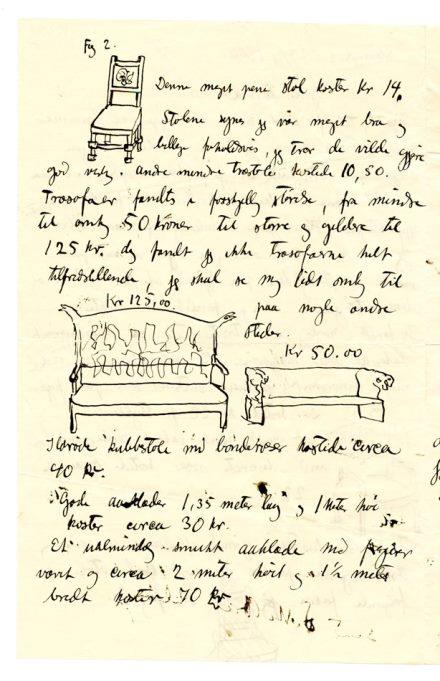 Fig 2.
Denne meget pene stol koster Kr 14,
Stolene synes jeg var meget bra og
billige forholdsvis, jeg tror de vilde gjøre
god verk. andre mindre træstole kostede 10,50.
Træsofaer fandtes i forskjellig størelse, fra mindre
til omkr 50 kroner til større og gjeldere til
125 kr. dog fandt jeg ikke træsofaerne helt
tilfredstillende jeg skal se mig lidt omkr til
Kr 125,00.
paa nogle andre
steder.
Kr 50.00
kubbstole med bönderoser kostede circa
40 kr.
Gode aaklæder 1,35 meter lang og 1 meter høi
koster circa 30 kr.
Et ualmindelig smukt aaklæde med figurer
vævt og circa 2 meter høit og 1½ meter
bredt koster 70 kr.